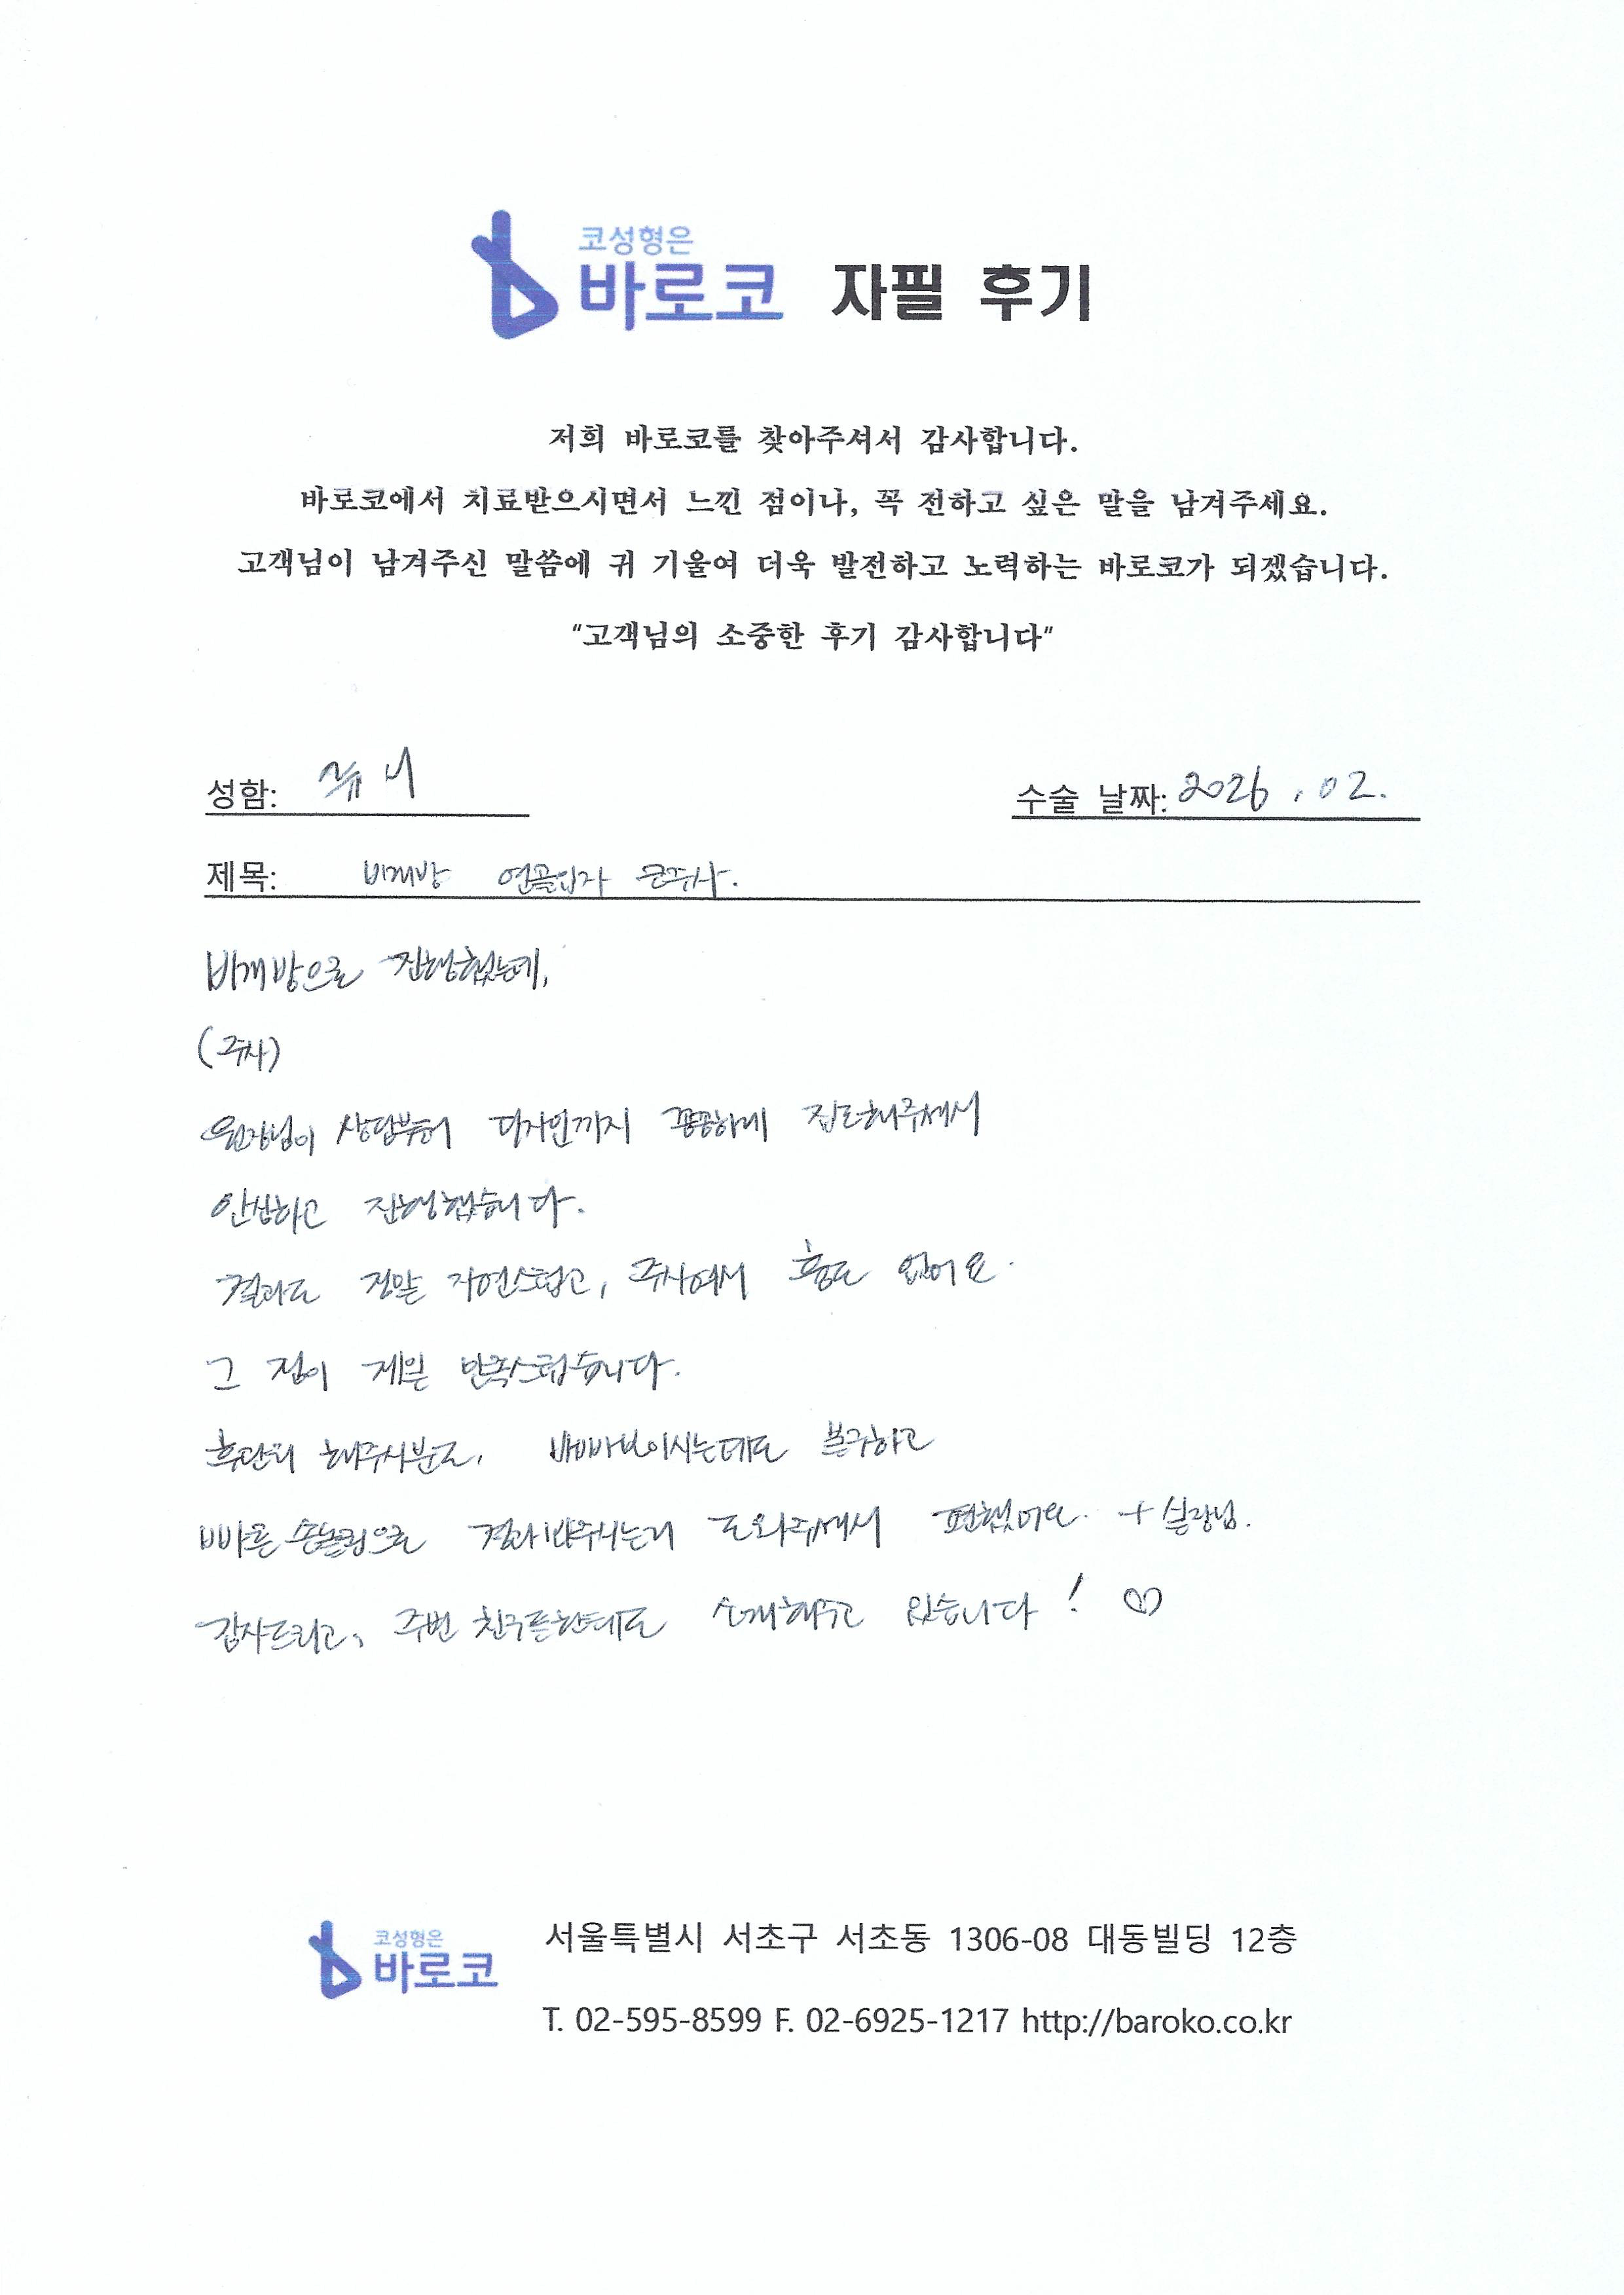 코성형은
바로코 자필 후기
저희 바로코를 찾아주셔서 감사합니다.
바로코에서 치료받으시면서 느낀 점이나, 꼭 전하고 싶은 말을 남겨주세요.
고객님이 남겨주신 말씀에 귀 기울여 더욱 발전하고 노력하는 바로코가 되겠습니다.
"고객님의 소중한 후기 감사합니다"
성함: 수술 날짜: 2026.02.
제목: 비개방 연골입자 코주사.
비개방으로 진행했는데,
(주사)
원장님이 상담부터 디자인까지 꼼꼼하게 집도해주셔서
안심하고 진행했습니다.
결과도 정말 자연스럽고, 주사여서 흉도 없어요.
그 점이 제일 만족스럽습니다.
후관리 해주시분도, 바빠보이시는데도 불구하고
빠른 손놀림으로 결과 도와주셔서 편했어요. + 실장님.
감사드리고, 주변 친구들한테도 소개해주고 있습니다! ♡
코성형은
바로코
서울특별시 서초구 서초동 1306-08 대동빌딩 12층
T. 02-595-8599 F. 02-6925-1217 http://baroko.co.kr